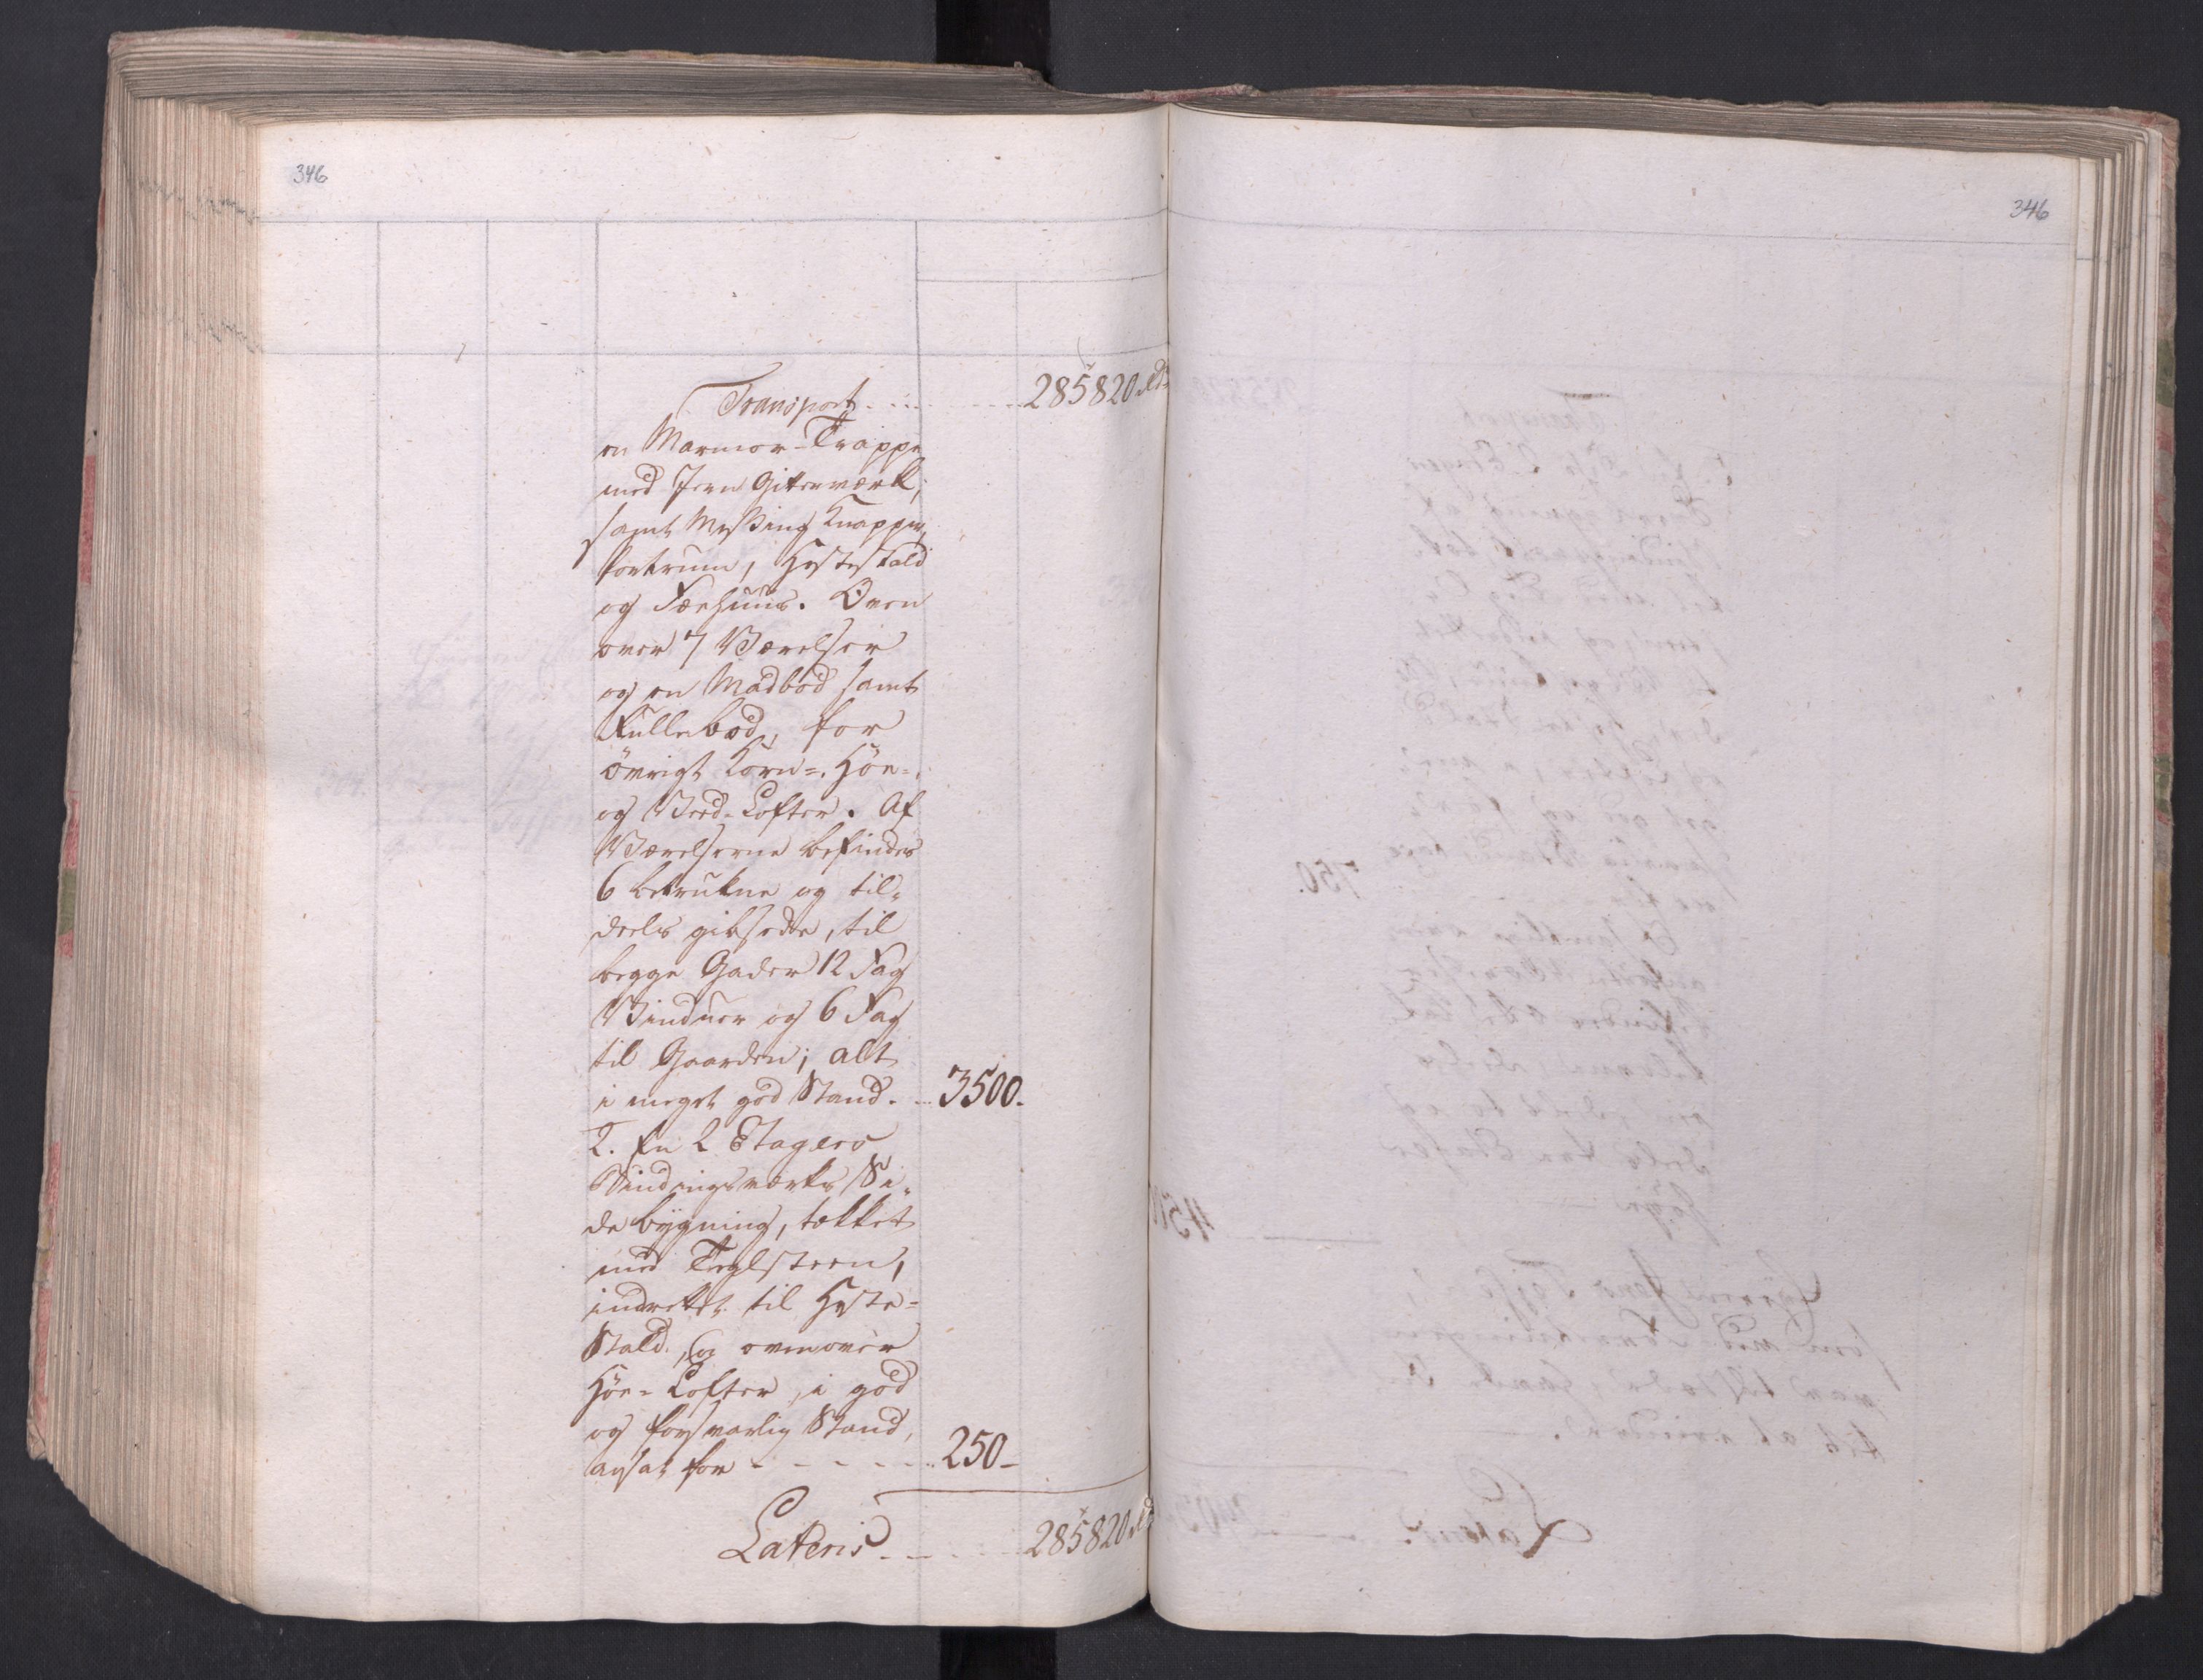 346
Transport . . . . . . . . 285820 Rd
en Marmor-Trappe
med Jern Gitterværk,
samt Messing Knapper,
Portrum, Hestestald
og Fæehuus. Oven
over 7 Værelser
og en Madbod samt
Rullebod, for
övrigt Korn-, Höe-,
og Veed-Lofter. Af
Værelserne befindes
6 betrukne og til-
deels gibsede, til
begge Gader 12 Fag
Vinduer og 6 Fag
til Gaarden; alt
i meget god Stand. . . 3500.
2. En 2 Etagers
Bindingsværks Si-
de bygning, tækket
med Teglsteen,
indrettet til Heste-
Stald, og ovenover
Höe-Lofter, i god
og forsvarlig Stand,
ansat for - - - - - 250-
Lateris . . . . . 285820 Rd
346